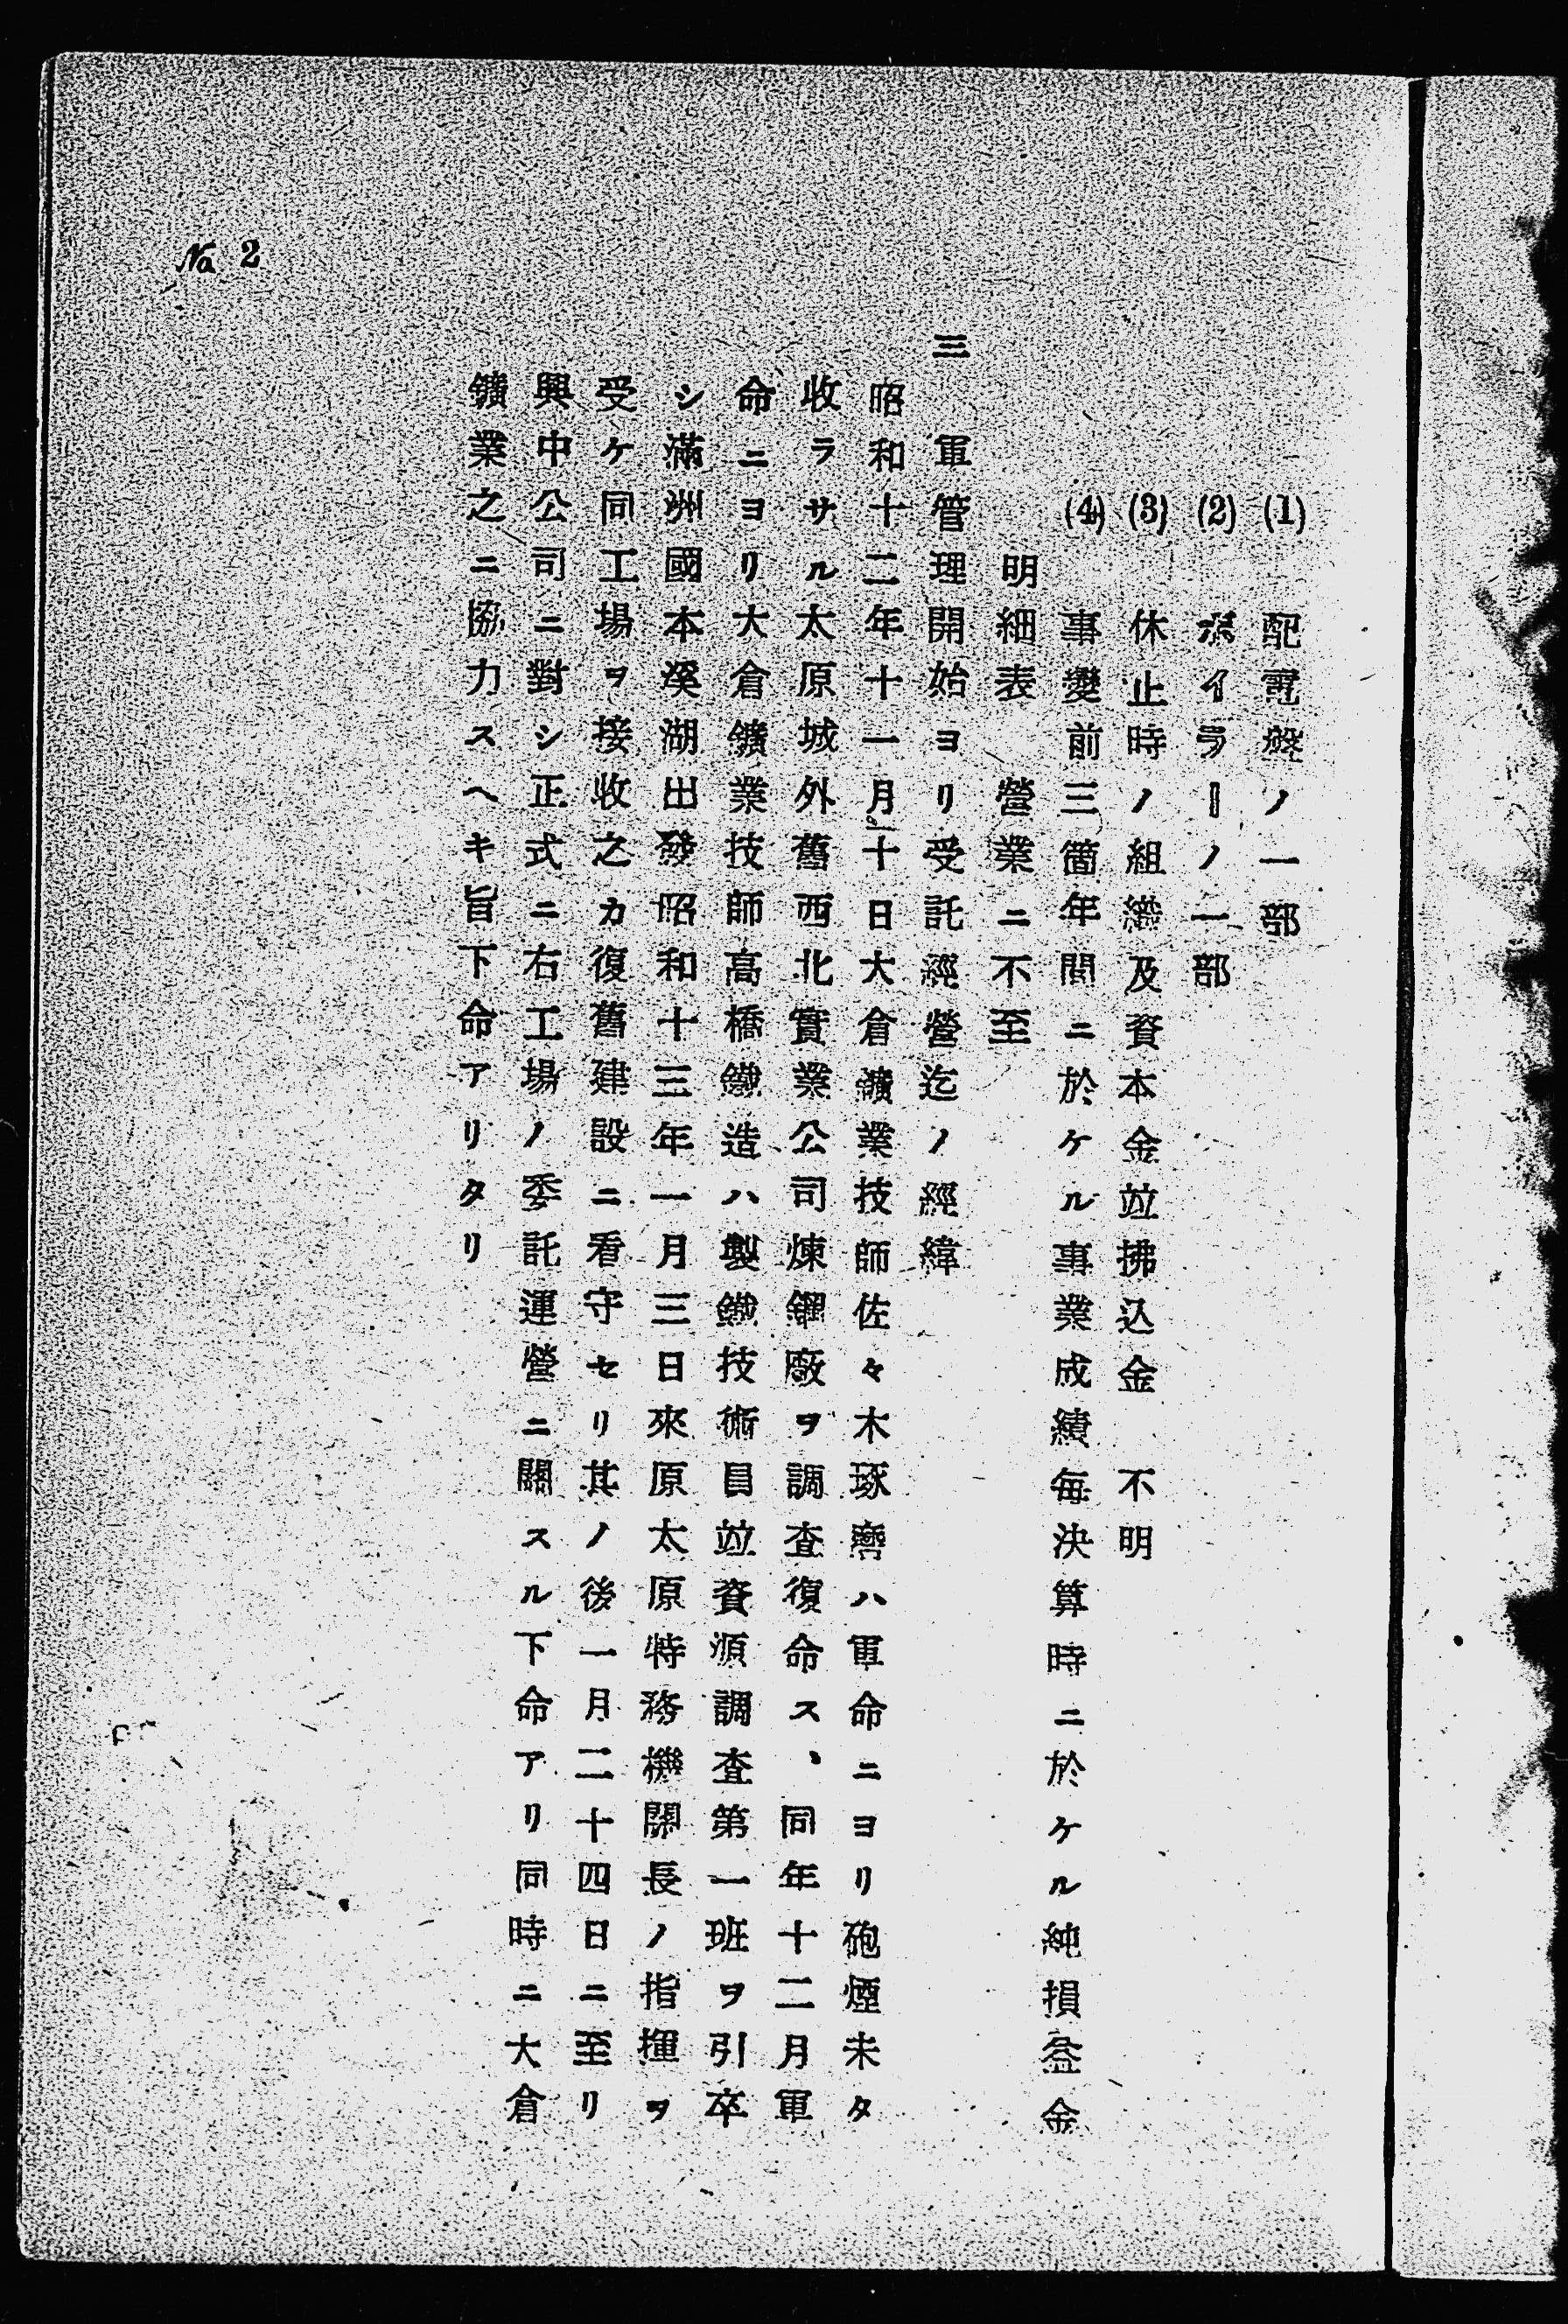 (1) 配電盤ノ一部
(2) ボイラーノ一部
(3) 休止時ノ組織及資本金竝拂込金 不明
(4) 事變前三箇年間ニ於ケル事業成績每決算時ニ於ケル純損益金
明細表 營業ニ不至
三 軍管理開始ヨリ受託經營迄ノ經緯
昭和十二年十一月二十日大倉鑛業技師佐々木琢磨ハ軍命ニヨリ砲煙未タ
收ラサル太原城外舊西北實業公司煉鋼廠ヲ調査復命ス、同年十二月軍
命ニヨリ大倉鑛業技師高橋鐵造ハ製鐵技術員竝資源調査第一班ヲ引卒
シ滿洲國本溪湖出發昭和十三年一月三日來原太原特務機關長ノ指揮ヲ
受ケ同工場ヲ接收之カ復舊建設ニ看守セリ其ノ後一月二十四日ニ至リ
興中公司ニ對シ正式ニ右工場ノ委託運營ニ關スル下命アリ同時ニ大倉
鑛業之ニ協力スヘキ旨下命アリタリ
No 2